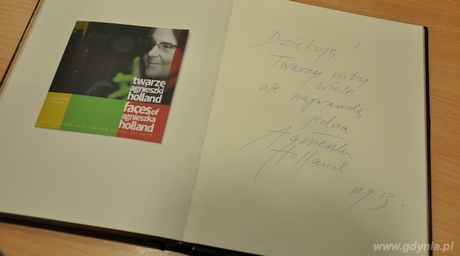 twarze
agnieszki
holland
faces of
agnieszka
holland
Dziękuję!
Twarzy niby
wiele
ale naprawdę
jedna
Agnieszka
Holland
10.9.13.
www.gdynia.pl